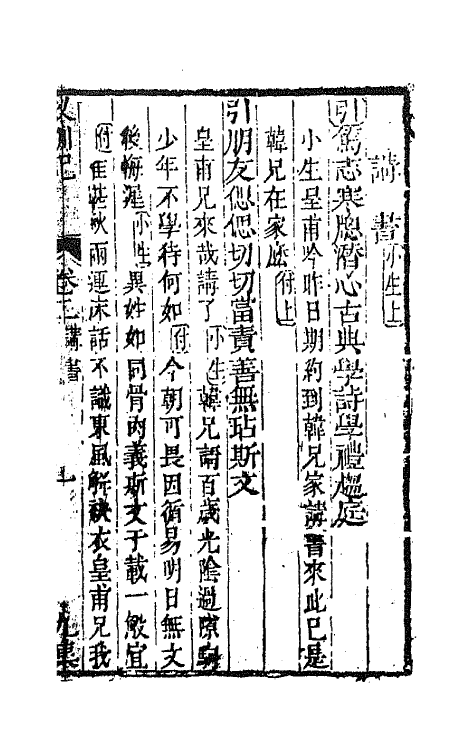 講書小生上
引篤志寒牕潛心古典學詩學禮趨庭
小生皇甫吟昨日期約到韓兄家講書來此已是
韓兄在家麽付上
引朋友偲偲切切當責善無玷斯文
皇甫兄來哉請了小生韓兄請百歲光陰過隙駒
少年不學待何如付今朝可畏因循易明日無文
後悔遲小生異姓如同骨肉義斯文千載一般宜
付 秋雨連床話不識東風解袂衣皇甫兄我
卷二 講書